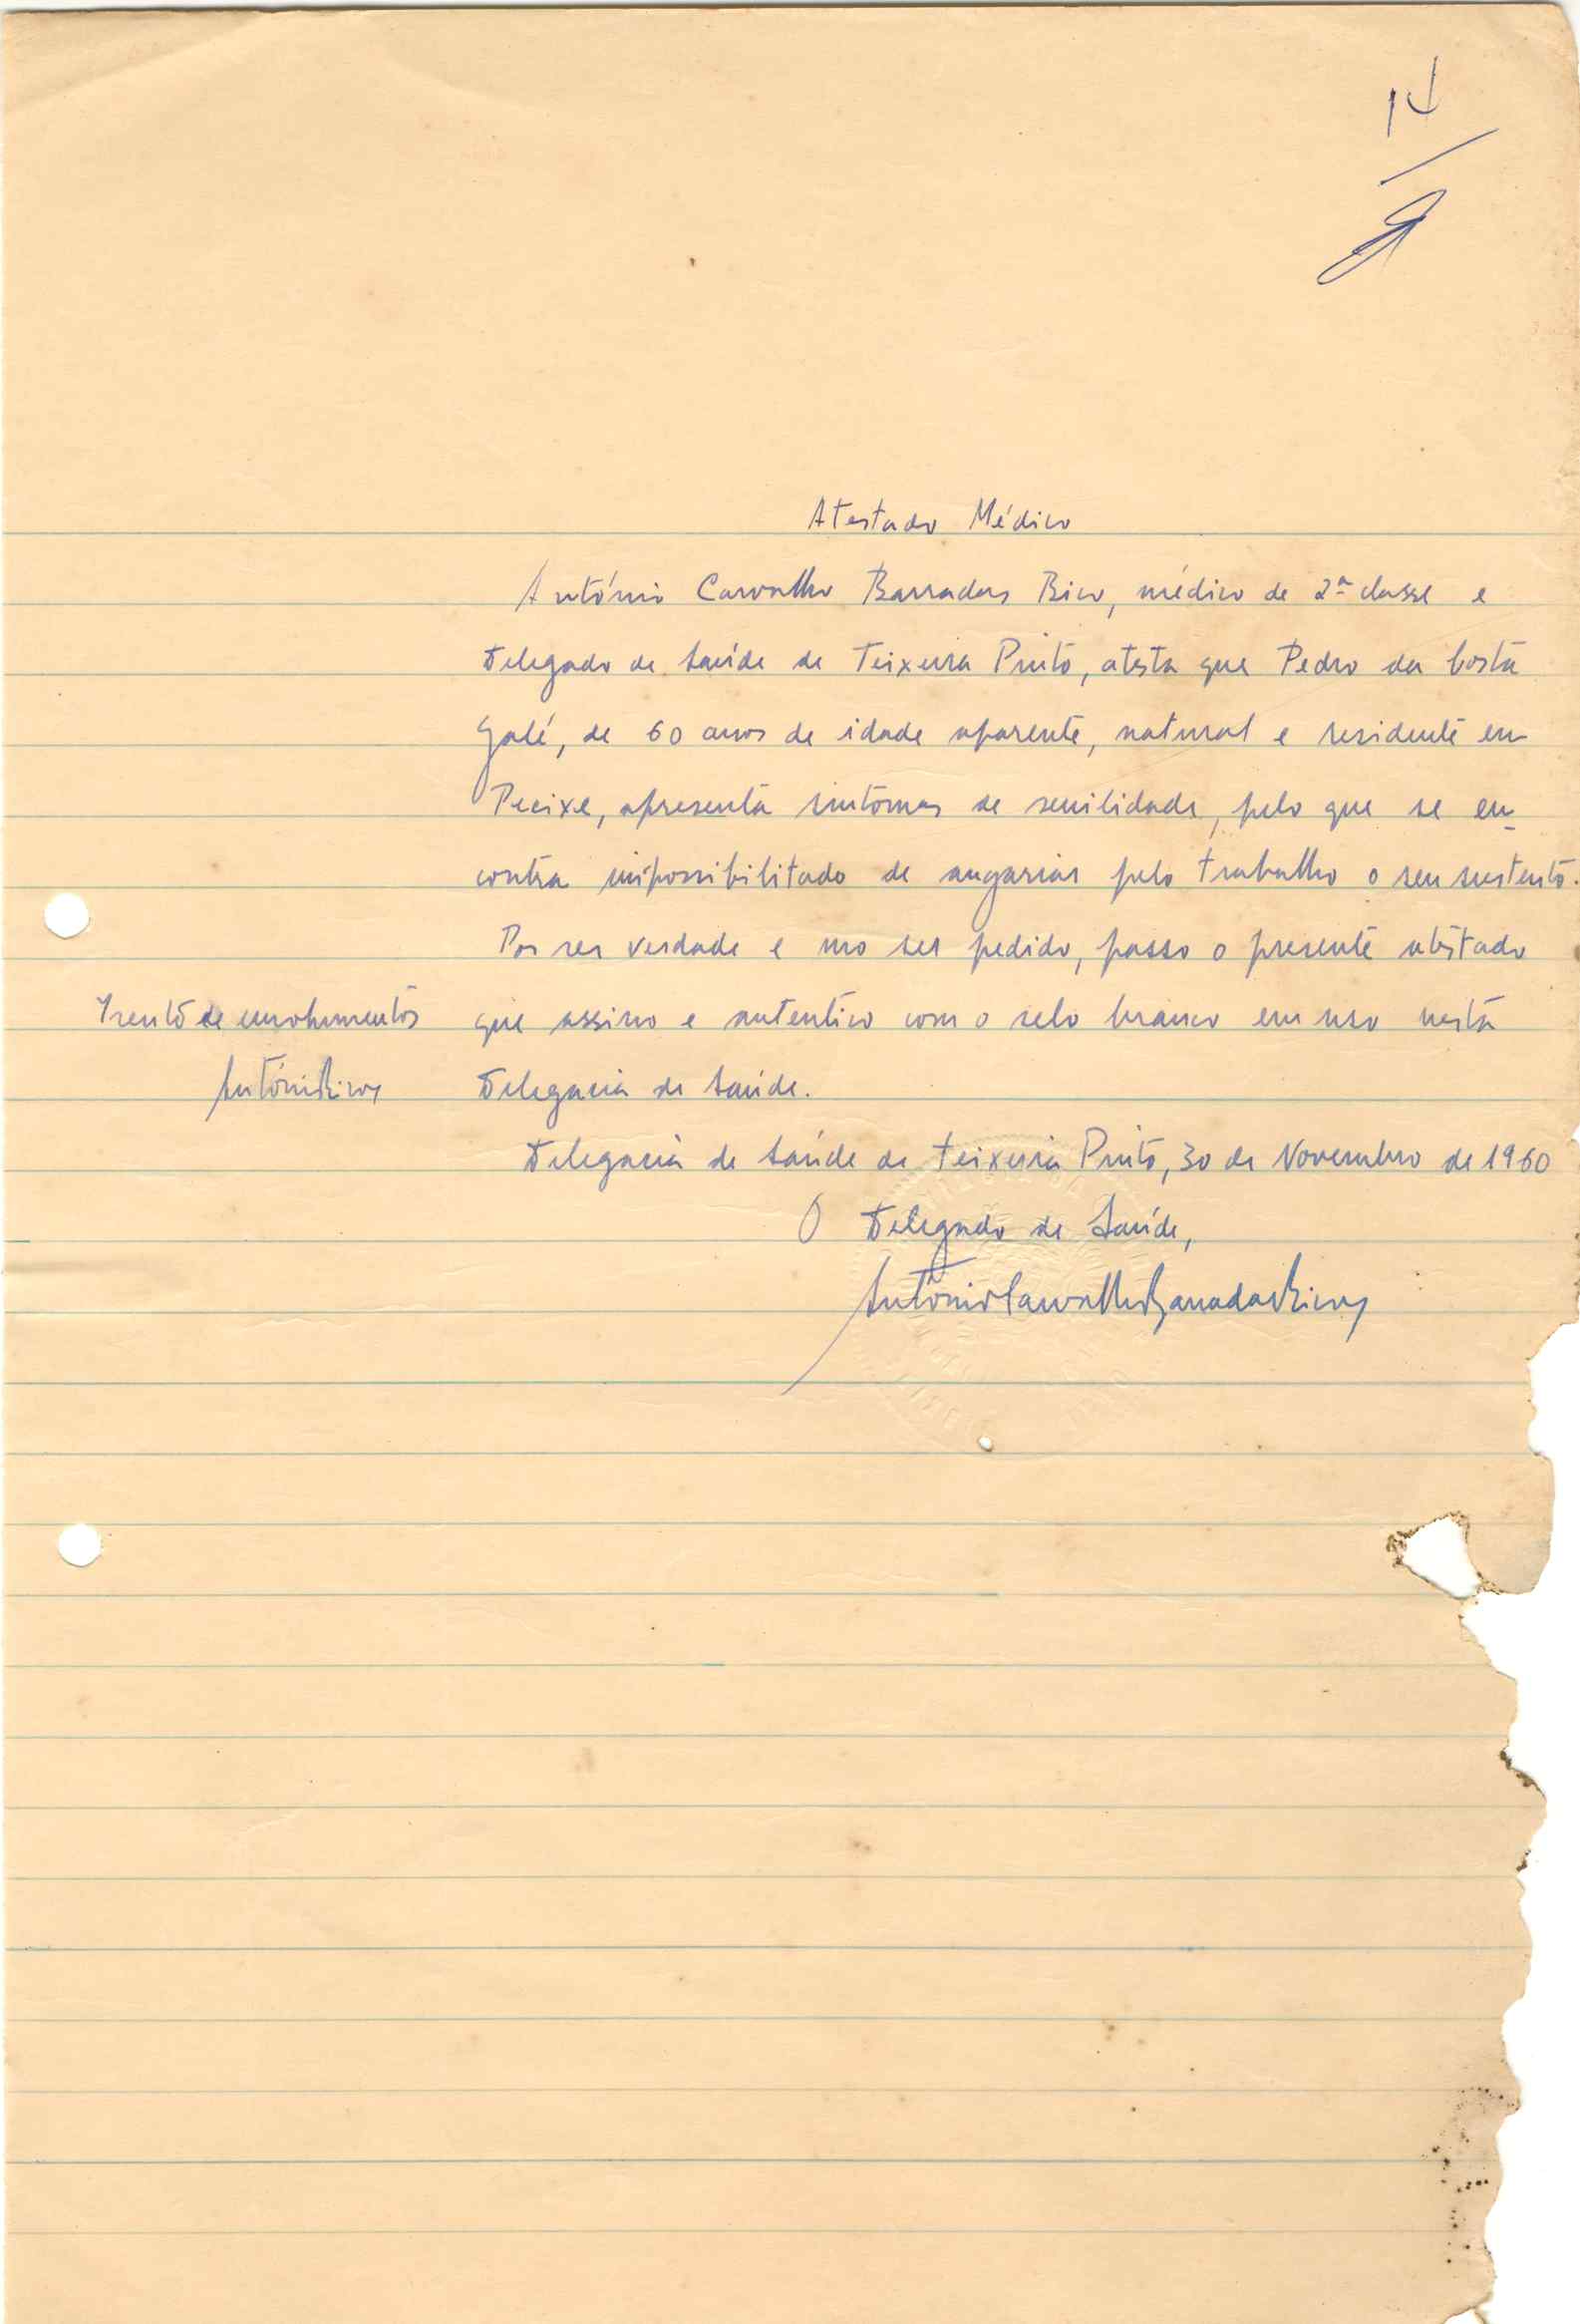 14
Atestado Médico
António Carvalho Barradas Bico, médico de 2ª classe e
Delegado de Saúde de Teixeira Pinto, atesta que Pedro da Costa
Galé, de 60 anos de idade aparente, natural e residente em
Pecixe, apresenta sintomas de senilidade, pelo que se en-
contra impossibilitado de angariar pelo trabalho o seu sustento.
Por ser verdade e me ser pedido, passo o presente atestado
que assino e autentico com o selo branco em uso nesta
Delegacia de Saúde.
Isento de emolumentos
António Bico
Delegacia de Saúde de Teixeira Pinto, 30 de Novembro de 1960
O Delegado de Saúde,
António Carvalho Barradas Bico